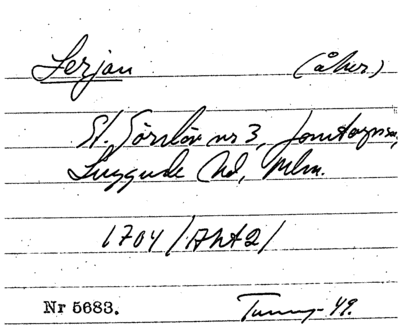 Serjan (åker)
St. Sörslöv nr 3, Jonstorps sn,
Luggude hd, Mlm.
1704 /Aht2/
Nr 5683. Tunny- 49.